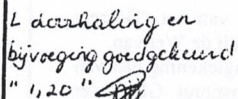 1 doorhaling en
bijvoeging goedgekeurd
"1,20"